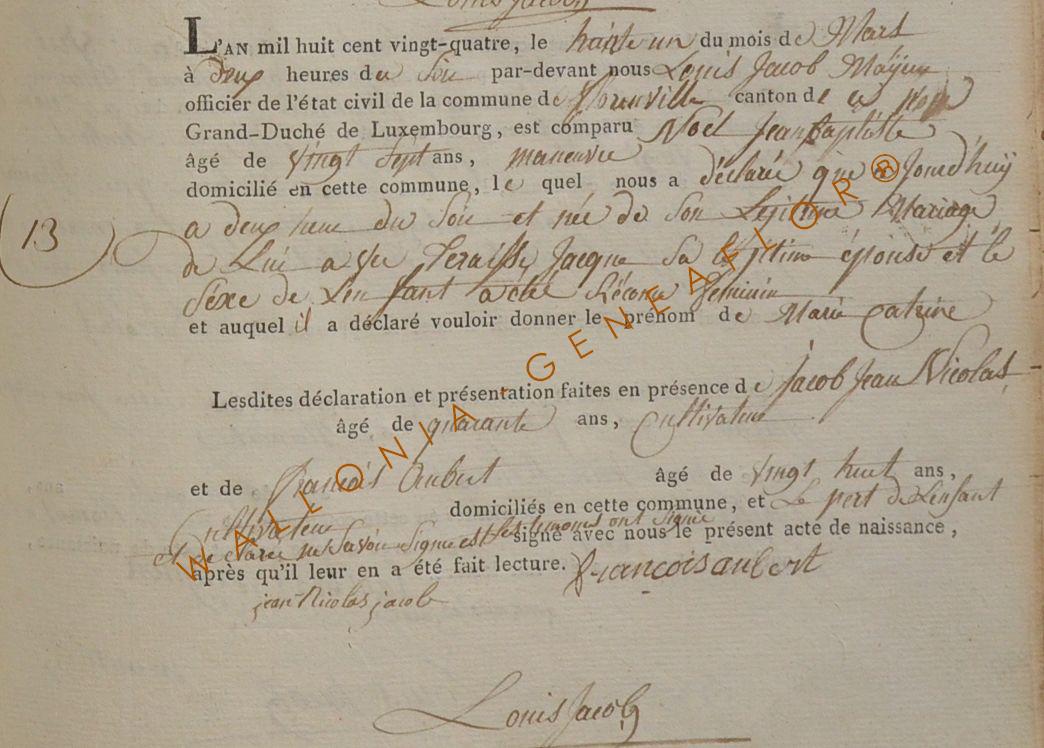 Louis Jacob
L'AN mil huit cent vingt-quatre, le trante un du mois de Mars
à deux heures du Soir par-devant nous Louis Jacob Mayeur
officier de l'état civil de la commune de canton de
Grand-Duché de Luxembourg, est comparu Noël Jean baptiste
âgé de vingt Sept ans, maneuvre
domicilié en cette commune, le quel nous a déclarée que Jourd'huÿ
a deux heure du Soir et née de Son Legitime Mariage
13
de Lui avec Jacque Sa légitime épouse et le
Sexe de L'enfant a été feminin
et auquel il a déclaré vouloir donner le prénom de Marie Catrine
Lesdites déclaration et présentation faites en présence de Jacob Jean Nicolas
âgé de quarante ans, Cultivateur
et de François Aubert âgé de vingt huit ans,
Cultivateur domiciliés en cette commune, et Le pert de L'enfant
et declaré ne Savoir Signe et les temoins ont Signe
signé avec nous le présent acte de naissance,
après qu'il leur en a été fait lecture. francois aubert
jean Nicolas jacob
Louis Jacob
WALLONIA - GENEAFLOR®